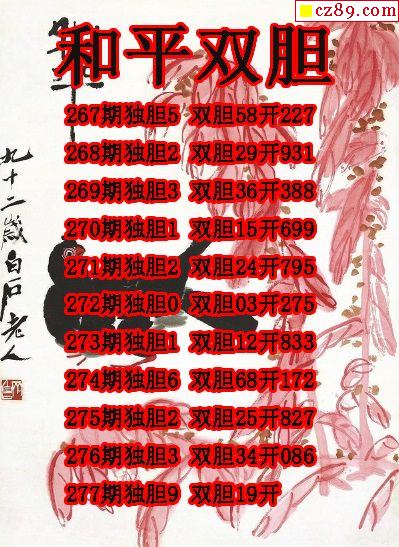 cz89.com
和平双胆
267期独胆5 双胆58开227
268期独胆2 双胆29开931
269期独胆3 双胆36开388
270期独胆1 双胆15开699
271期独胆2 双胆24开795
272期独胆0 双胆03开275
273期独胆1 双胆12开833
274期独胆6 双胆68开172
275期独胆2 双胆25开827
276期独胆3 双胆34开086
277期独胆9 双胆19开
九十二歲白石老人